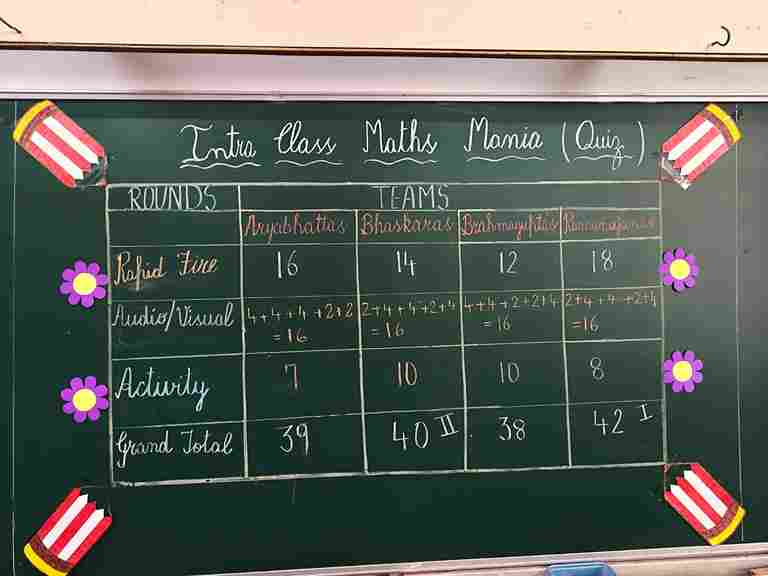 Intra Class Maths Mania (Quiz)
ROUNDS TEAMS
Aryabhattas Bhaskaras Brahmaguptas Ramanujanas
Rapid Fire 16 14 12 18
Audio/Visual 4+4+4+2+2 2+4+4+2+4 4+4+2+2+4 2+4+4+2+4
=16 =16 =16 =16
Activity 7 10 10 8
Grand Total 39 40 II 38 42 I